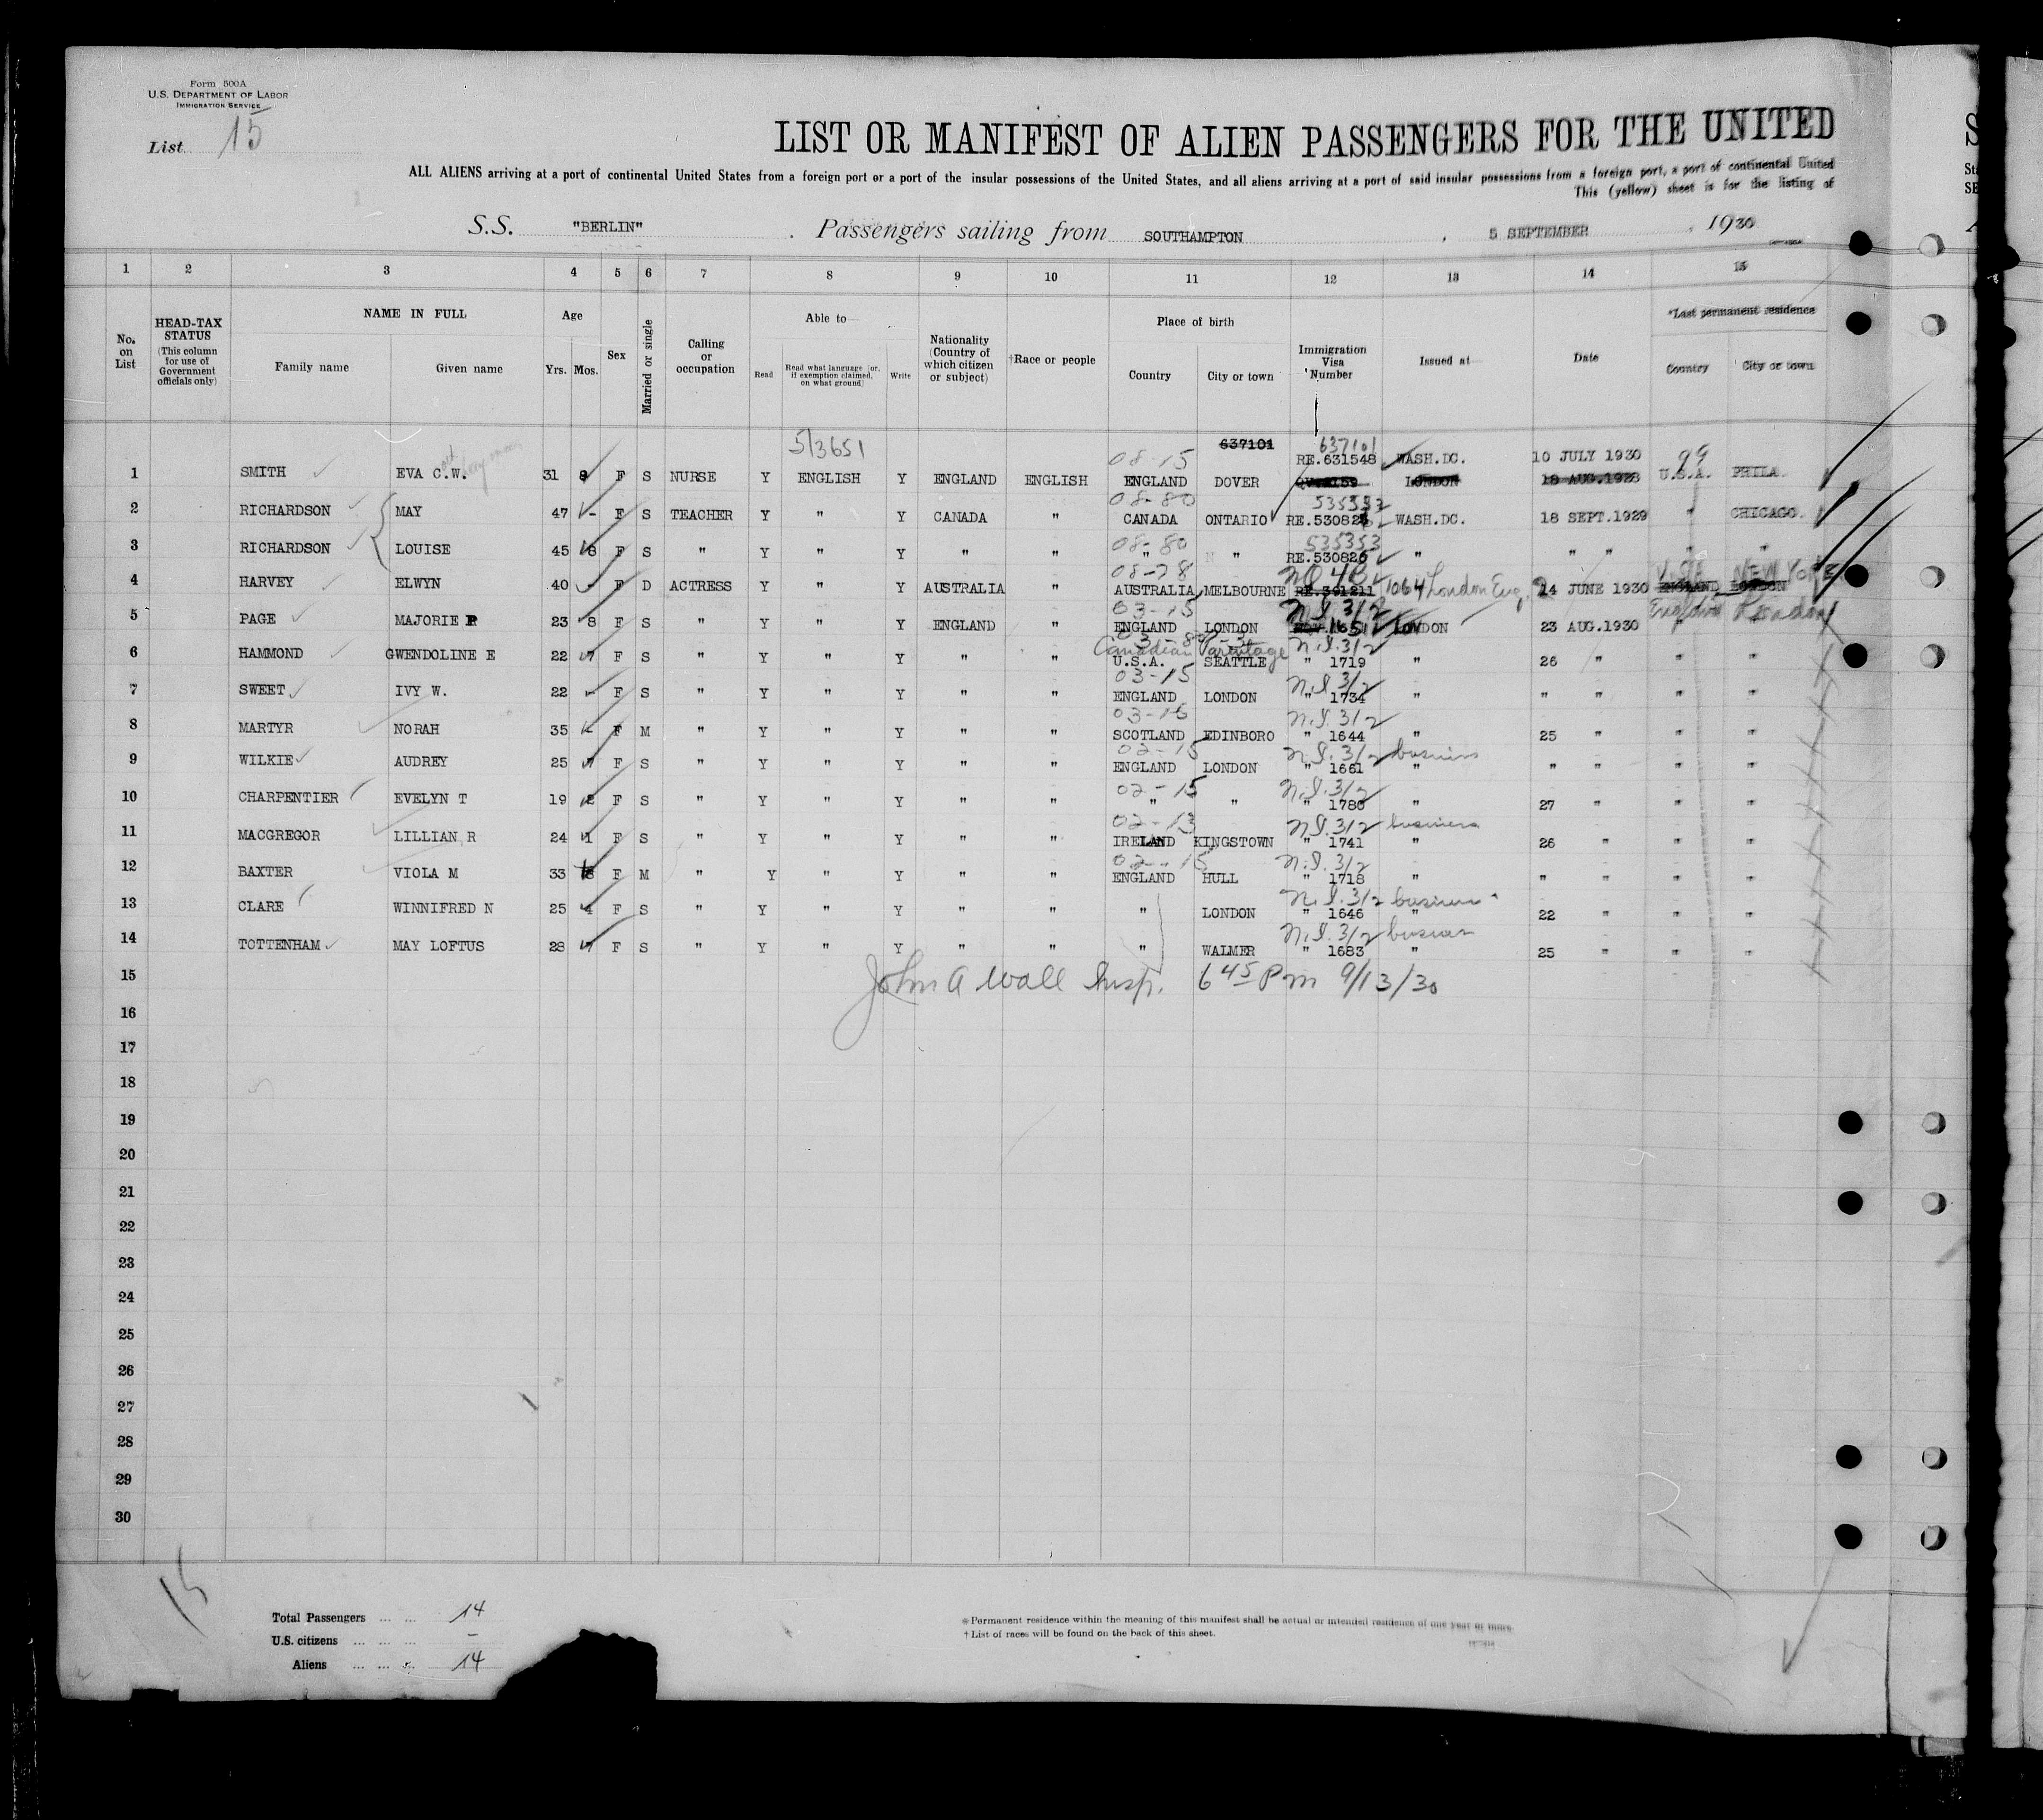 Form 500A
U.S. DEPARTMENT OF LABOR
IMMIGRATION SERVICE
List 15
LIST OR MANIFEST OF ALIEN PASSENGERS FOR THE UNITED
ALL ALIENS arriving at a port of continental United States from a foreign port or a port of the insular possessions of the United States, and all aliens arriving at a port of said insular possessions from a foreign port, a port of continental United
This (yellow) sheet is for the listing of
S.S. "BERLIN" Passengers sailing from SOUTHAMPTON, 5 SEPTEMBER, 1930
1 2 3 4 5 6 7 8 9 10 11 12 13 14 15
No. on List
HEAD-TAX STATUS (This column for use of Government officials only)
NAME IN FULL Family name Given name
Age Yrs. Mos.
Sex
Married or single
Calling or occupation
Able to Read Read what language [or, if exemption claimed, on what ground] Write
Nationality (Country of which citizen or subject)
†Race or people
Place of birth Country City or town
Immigration Visa Number
Issued at
Date
*Last permanent residence Country City or town
513651 637101 637101
08-15 RE.631548 WASH.DC. 10 JULY 1930 99
1 SMITH EVA C.W. 31 8 F S NURSE Y ENGLISH Y ENGLAND ENGLISH ENGLAND DOVER LONDON 18 AUG.1928 U.S.A. PHILA.
08-80 535332
2 RICHARDSON MAY 47 - F S TEACHER Y " Y CANADA " CANADA ONTARIO RE.53082 WASH.DC. 18 SEPT.1929 " CHICAGO.
08-80 535353
3 RICHARDSON LOUISE 45 8 F S " Y " Y " " " " RE.530826 " " " " "
08-28 U.S.A. NEW YORK
4 HARVEY ELWYN 40 - F D ACTRESS Y " Y AUSTRALIA " AUSTRALIA MELBOURNE RE.391211 1064 London Eng. 14 JUNE 1930 ENGLAND LONDON
03-15 N.I. 3/2 England London
5 PAGE MAJORIE P 23 8 F S " Y " Y ENGLAND " ENGLAND LONDON 1651 LONDON 23 AUG.1930
Canadian Parentage N.I. 3/2
6 HAMMOND GWENDOLINE E 22 7 F S " Y " Y " " U.S.A. SEATTLE " 1719 " 26 " " "
03-15 N.I. 3/2
7 SWEET IVY W. 22 - F S " Y " Y " " ENGLAND LONDON " 1734 " " " " "
03-15 N.I. 3/2
8 MARTYR NORAH 35 - F M " Y " Y " " SCOTLAND EDINBORO " 1644 " 25 " " "
02-15 N.I. 3/2 business
9 WILKIE AUDREY 25 7 F S " Y " Y " " ENGLAND LONDON " 1661 " " " " "
02-15 N.I. 3/2
10 CHARPENTIER EVELYN T 19 2 F S " Y " Y " " " " " 1780 " 27 " " "
02-13 N.I. 3/2 business
11 MACGREGOR LILLIAN R 24 1 F S " Y " Y " " IRELAND KINGSTOWN " 1741 " 26 " " "
02-15 N.I. 3/2
12 BAXTER VIOLA M 33 8 F M " Y " Y " " ENGLAND HULL " 1718 " " " " "
N.I. 3/2 business
13 CLARE WINNIFRED N 25 4 F S " Y " Y " " " LONDON " 1646 " 22 " " "
N.I. 3/2 business
14 TOTTENHAM MAY LOFTUS 28 7 F S " Y " Y " " " WALMER " 1683 " 25 " " "
15 John A Wall Insp. 6 45 Pm 9/13/30
16
17
18
19
20
21
22
23
24
25
26
27
28
29
30
15
Total Passengers ... ... 14
U.S. citizens ... ... ... -
Aliens ... ... ... 14
*Permanent residence within the meaning of this manifest shall be actual or intended residence of one year or more.
†List of races will be found on the back of this sheet.